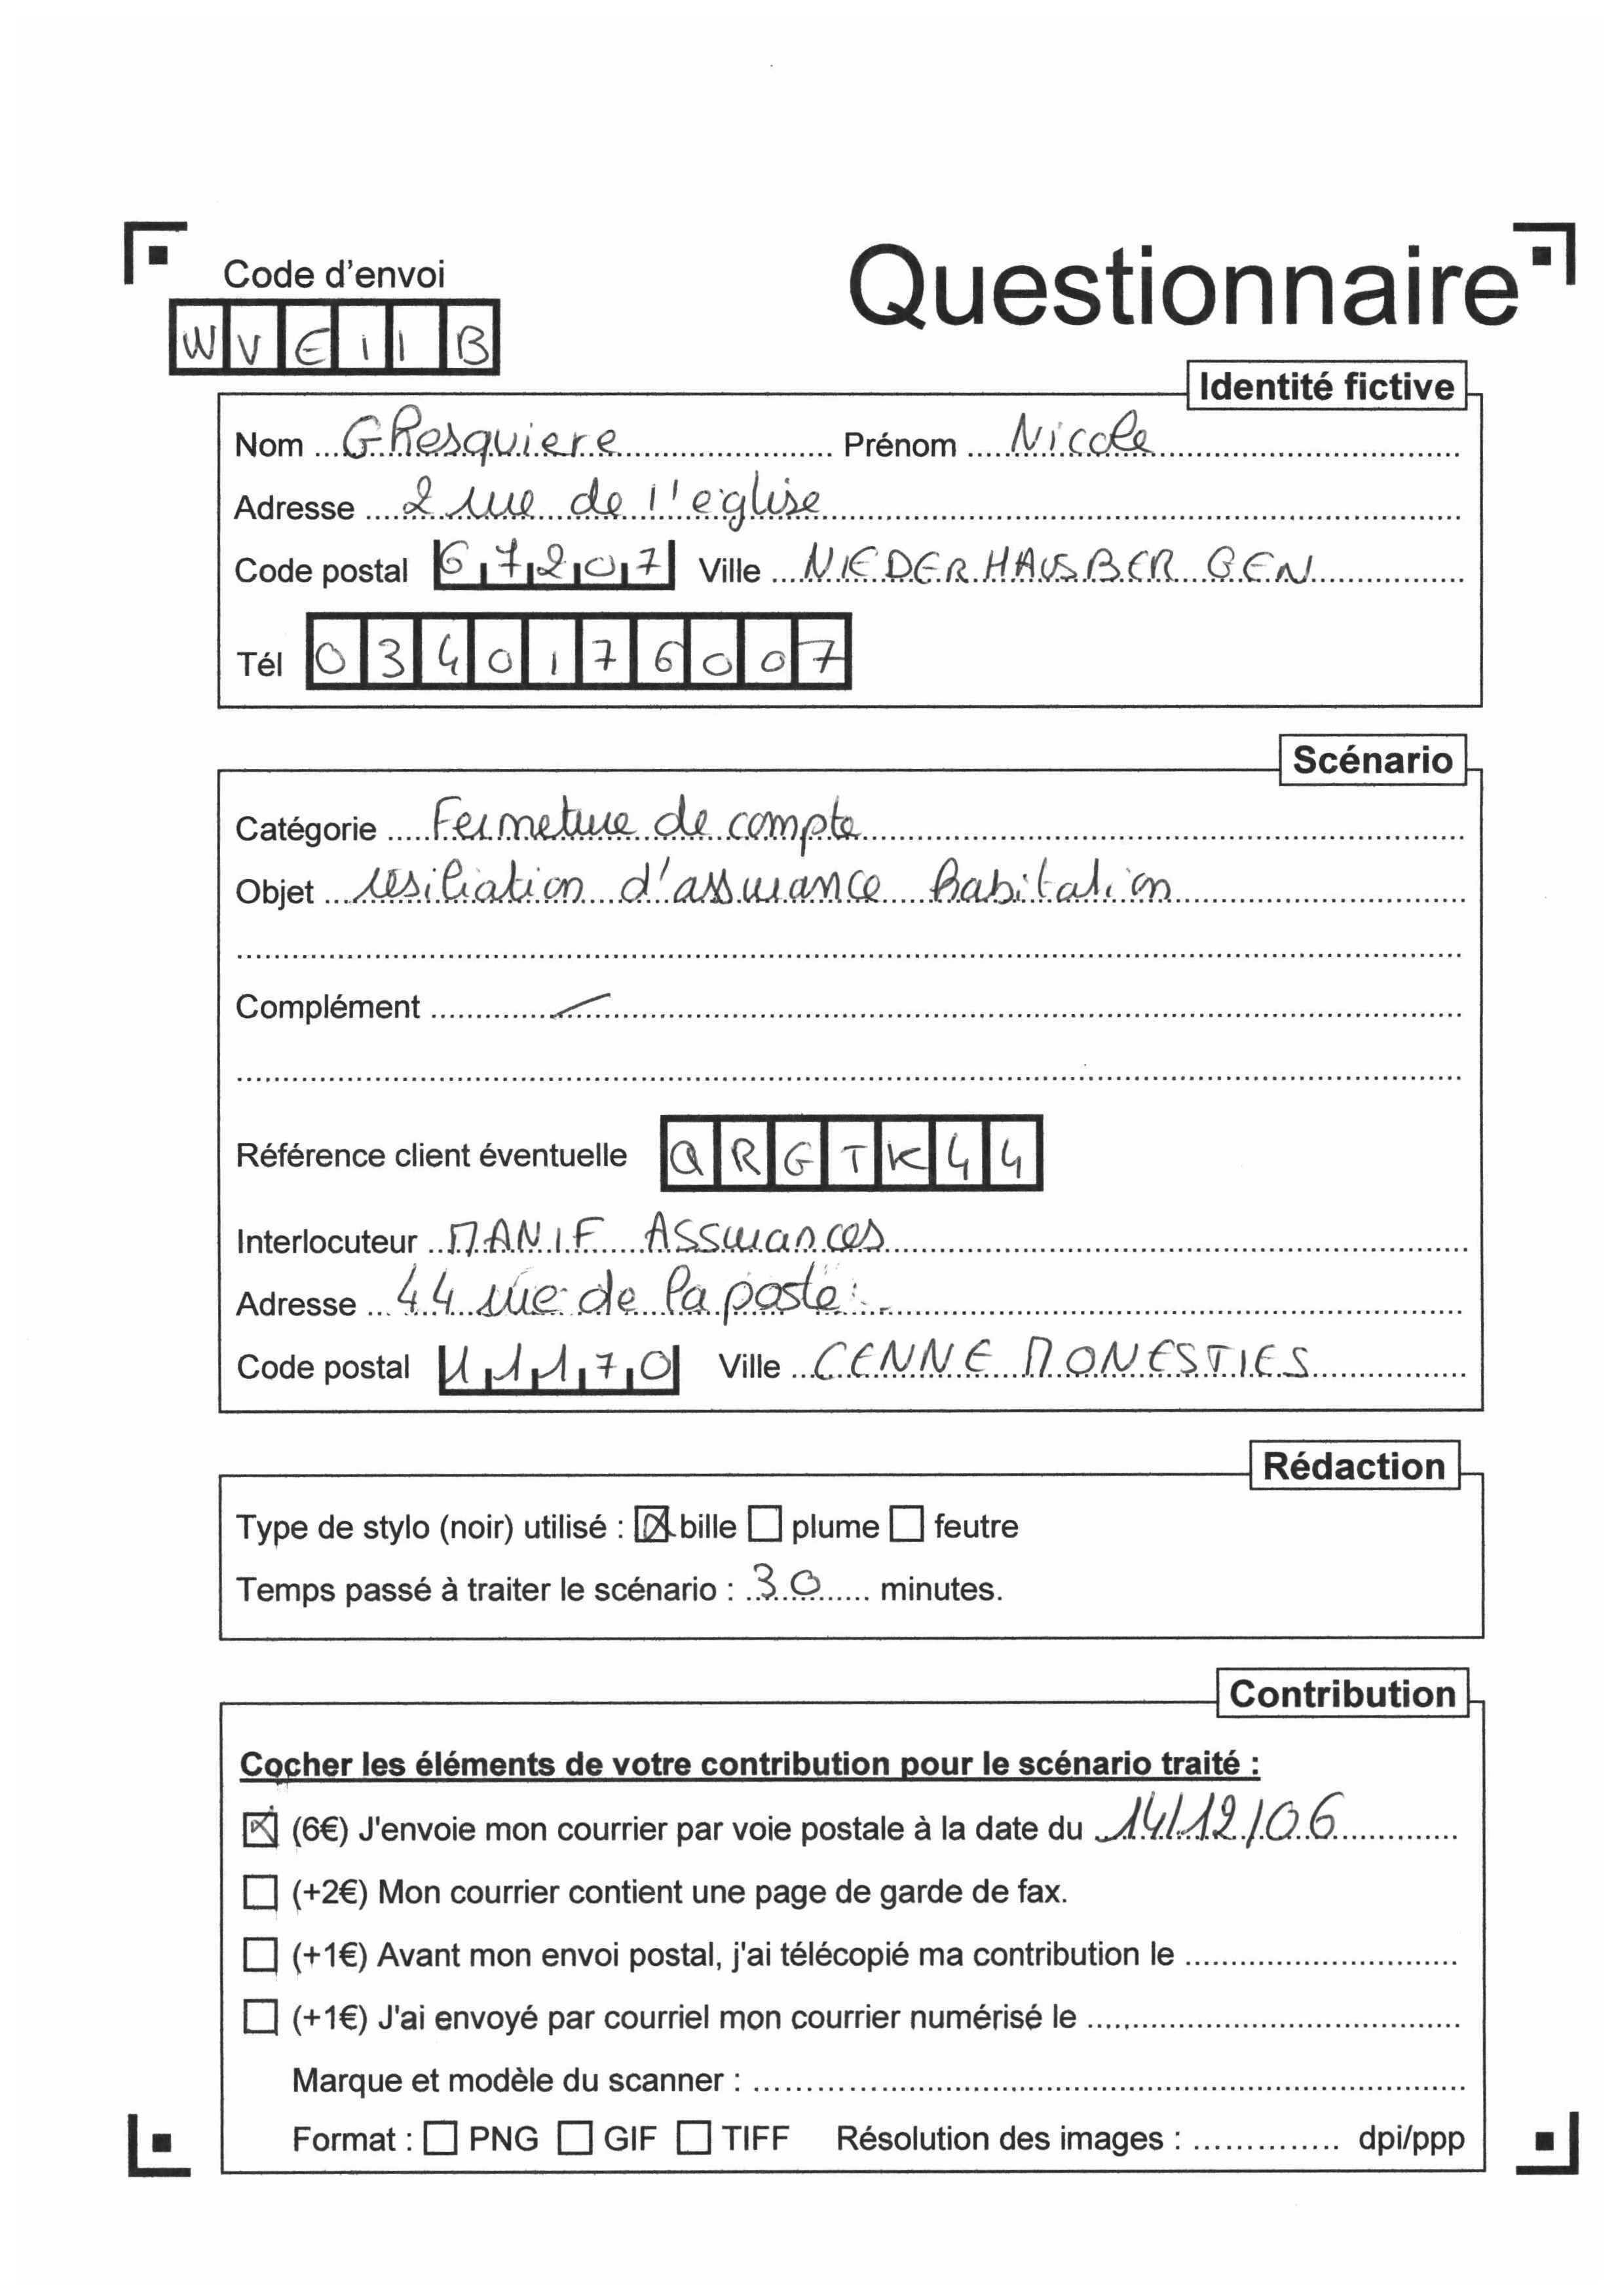 Code d'envoi
Questionnaire
WVEIIB
Identité fictive
Nom GhesquiERE Prénom Nicole
Adresse 2 rue de l'église
Code postal 67207 Ville NIEDERHAUSBERGEN
Tél 0340176007
Scénario
Catégorie Fermeture de compte
Objet résiliation d'assurance habitation
Complément /
Référence client éventuelle QRGTK44
Interlocuteur MANIF Assurances
Adresse 44 rue de la poste
Code postal 11170 Ville CENNE MONESTIES
Rédaction
Type de stylo (noir) utilisé : ☒ bille ☐ plume ☐ feutre
Temps passé à traiter le scénario : 30 minutes.
Contribution
Cocher les éléments de votre contribution pour le scénario traité :
☒ (6€) J'envoie mon courrier par voie postale à la date du 14/12/06
☐ (+2€) Mon courrier contient une page de garde de fax.
☐ (+1€) Avant mon envoi postal, j'ai télécopié ma contribution le
☐ (+1€) J'ai envoyé par courriel mon courrier numérisé le
Marque et modèle du scanner :
Format : ☐ PNG ☐ GIF ☐ TIFF Résolution des images : dpi/ppp